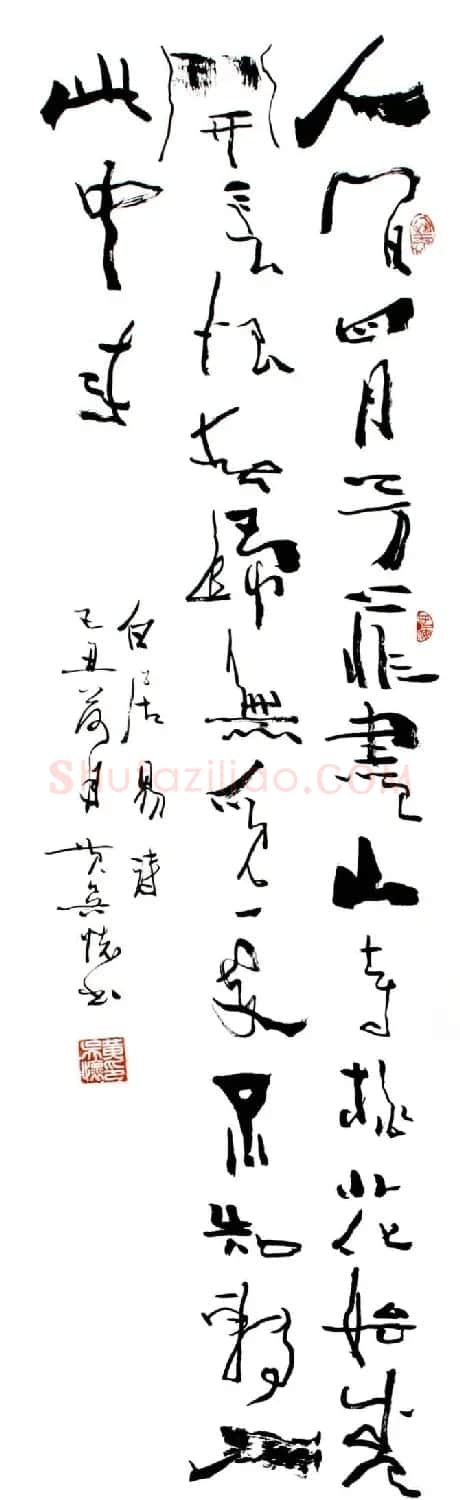 人間四月芳菲盡山寺桃花始盛
開長恨春歸無覓處不知轉入
此中來
白居易詩
己丑荷月黄吴懷书
Shufaziliao.COM